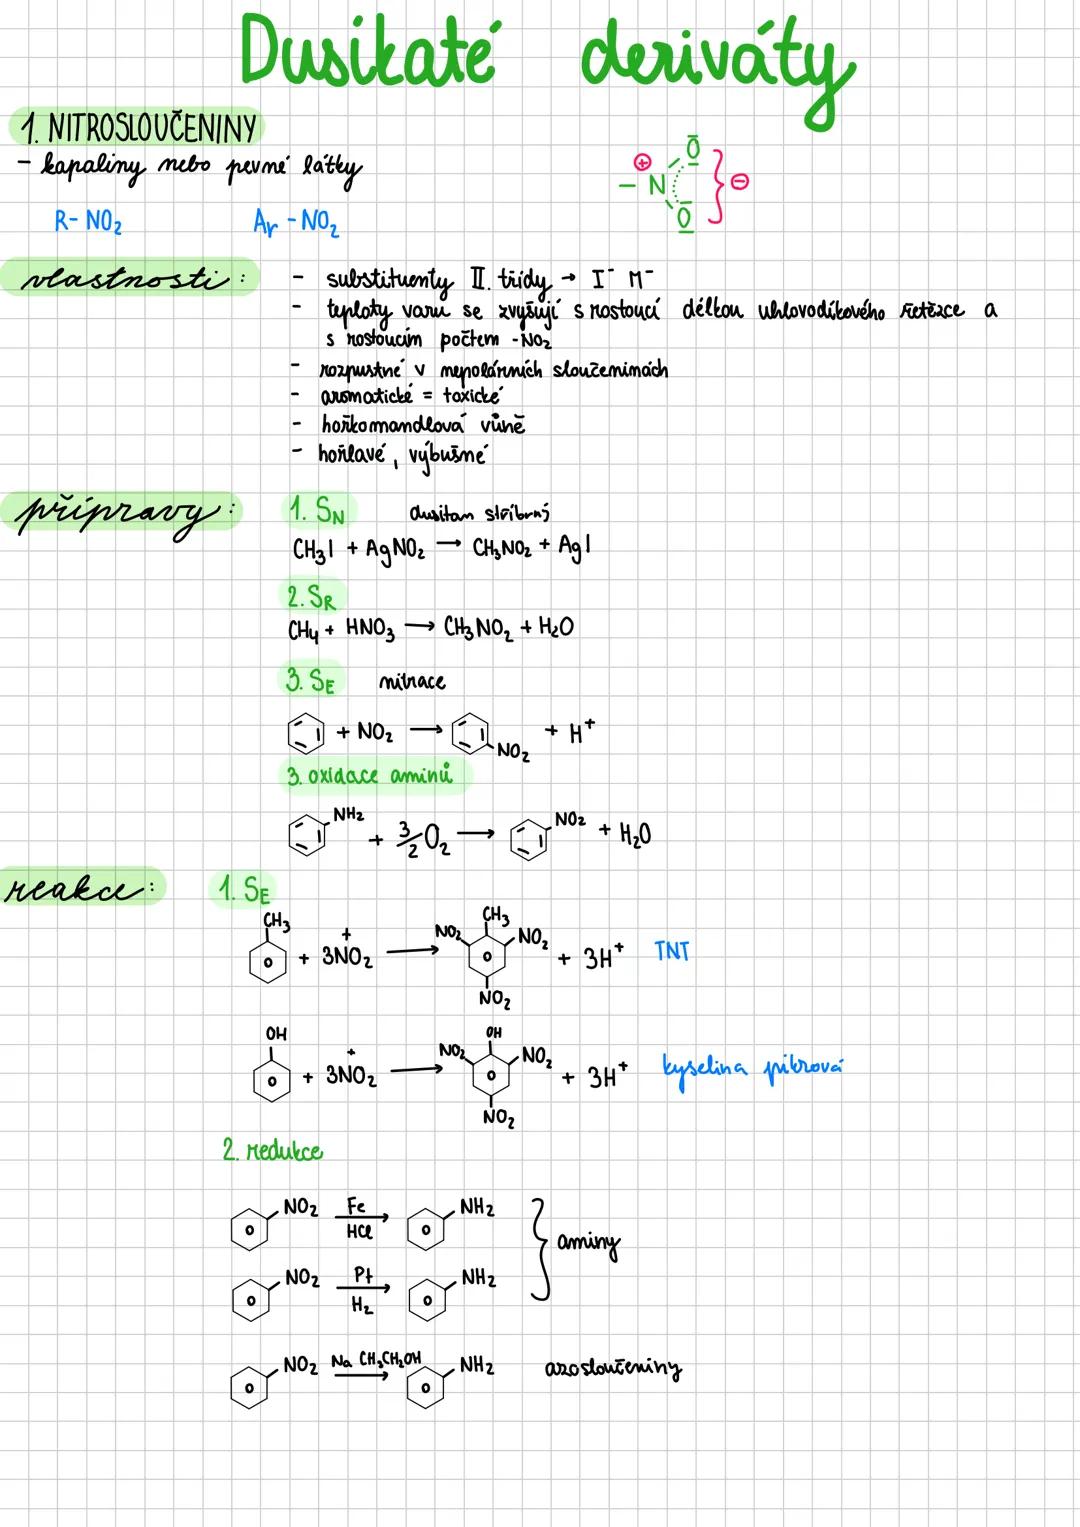 Dusikaté deriváty
1. NITROSLOUČENINY
- kapaliny nebo pevné látky
⊕ - N O O } ⊖
R- NO2 Ar - NO2
vlastnosti:
- substituenty II. třídy → I⁻ M⁻
- teploty varu se zvyšují s rostoucí délkou uhlovodíkového řetězce a
s rostoucím počtem -NO2
- rozpustné v nepolárních sloučeninách
- aromatické = toxické
- hořkomandlová vůně
- hořlavé, výbušné
přípravy:
1. SN dusitan stříbrný
CH3I + AgNO2 → CH3NO2 + AgI
2. SR
CH4 + HNO3 → CH3NO2 + H2O
3. SE nitrace
+ NO2 → NO2 + H⁺
3. oxidace aminů
NH2 + 3/2 O2 → NO2 + H2O
reakce:
1. SE
CH3 + 3NO2⁺ → CH3 NO2 NO2 NO2 + 3H⁺ TNT
OH + 3NO2⁺ → OH NO2 NO2 NO2 + 3H⁺ kyselina pikrová
2. redukce
NO2 Fe HCl → NH2
} aminy
NO2 Pt H2 → NH2
NO2 Na CH3CH2OH → NH2 azosloučeniny